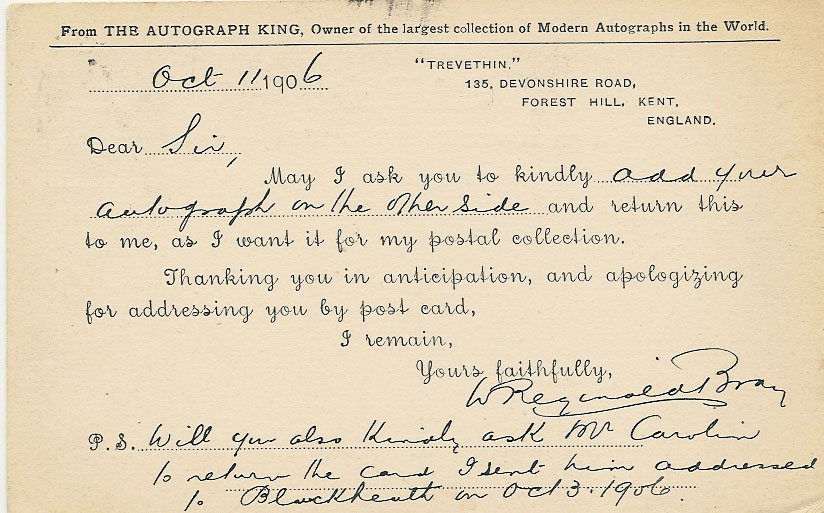 From THE AUTOGRAPH KING, Owner of the largest collection of Modern Autographs in the World.
Oct 11 1906
"TREVETHIN."
135, DEVONSHIRE ROAD,
FOREST HILL, KENT,
ENGLAND.
Dear Sir,
May I ask you to kindly add your
autograph on the other side and return this
to me, as I want it for my postal collection.
Thanking you in anticipation, and apologizing
for addressing you by post card,
I remain,
Yours faithfully,
W Reginald Bray
P.S. Will you also kindly ask Mr Carolin
to return the card I sent him addressed
to Blackheath on Oct 3. 1906.